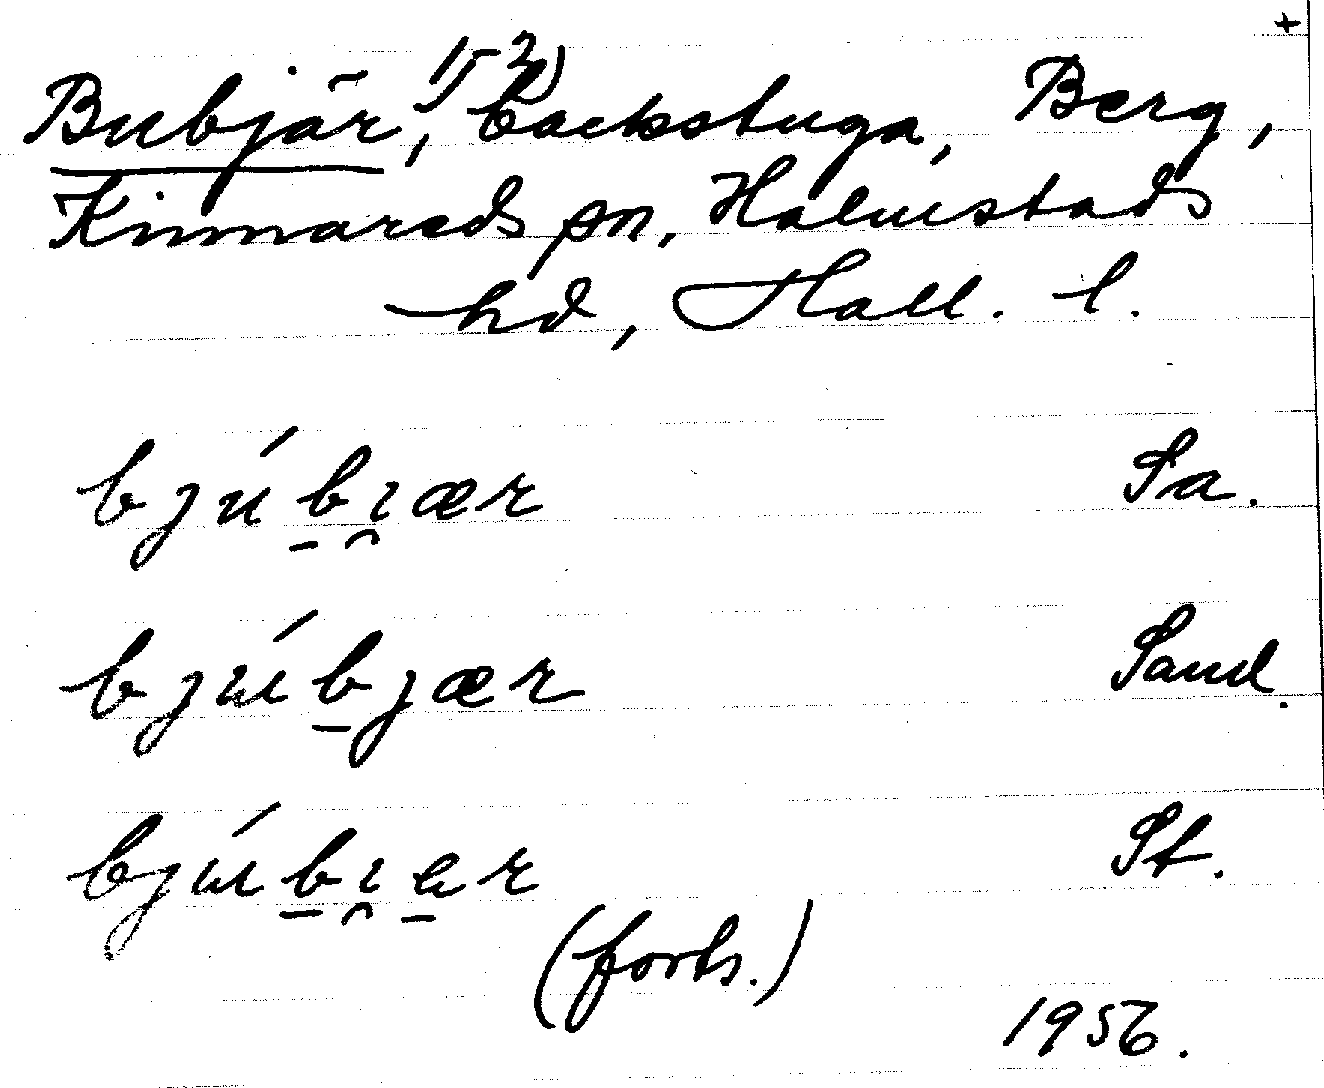 +
Bubjär,¹⁾ ²⁾ backstuga, Berg,
Kinnareds sn, Halmstads
hd, Hall. l.
bjúb̠ı̯ær Sa.
bjúb̠jær Sand.
bjúb̠ı̯a̠r St.
(forts.)
1956.